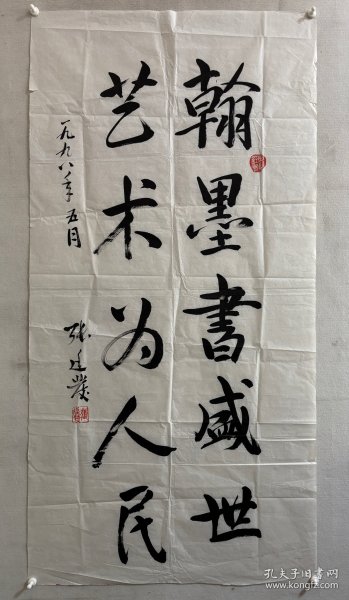 翰墨书盛世
艺术为人民
一九九八年五月
张廷
孔夫子旧书网
www.kongfz.com